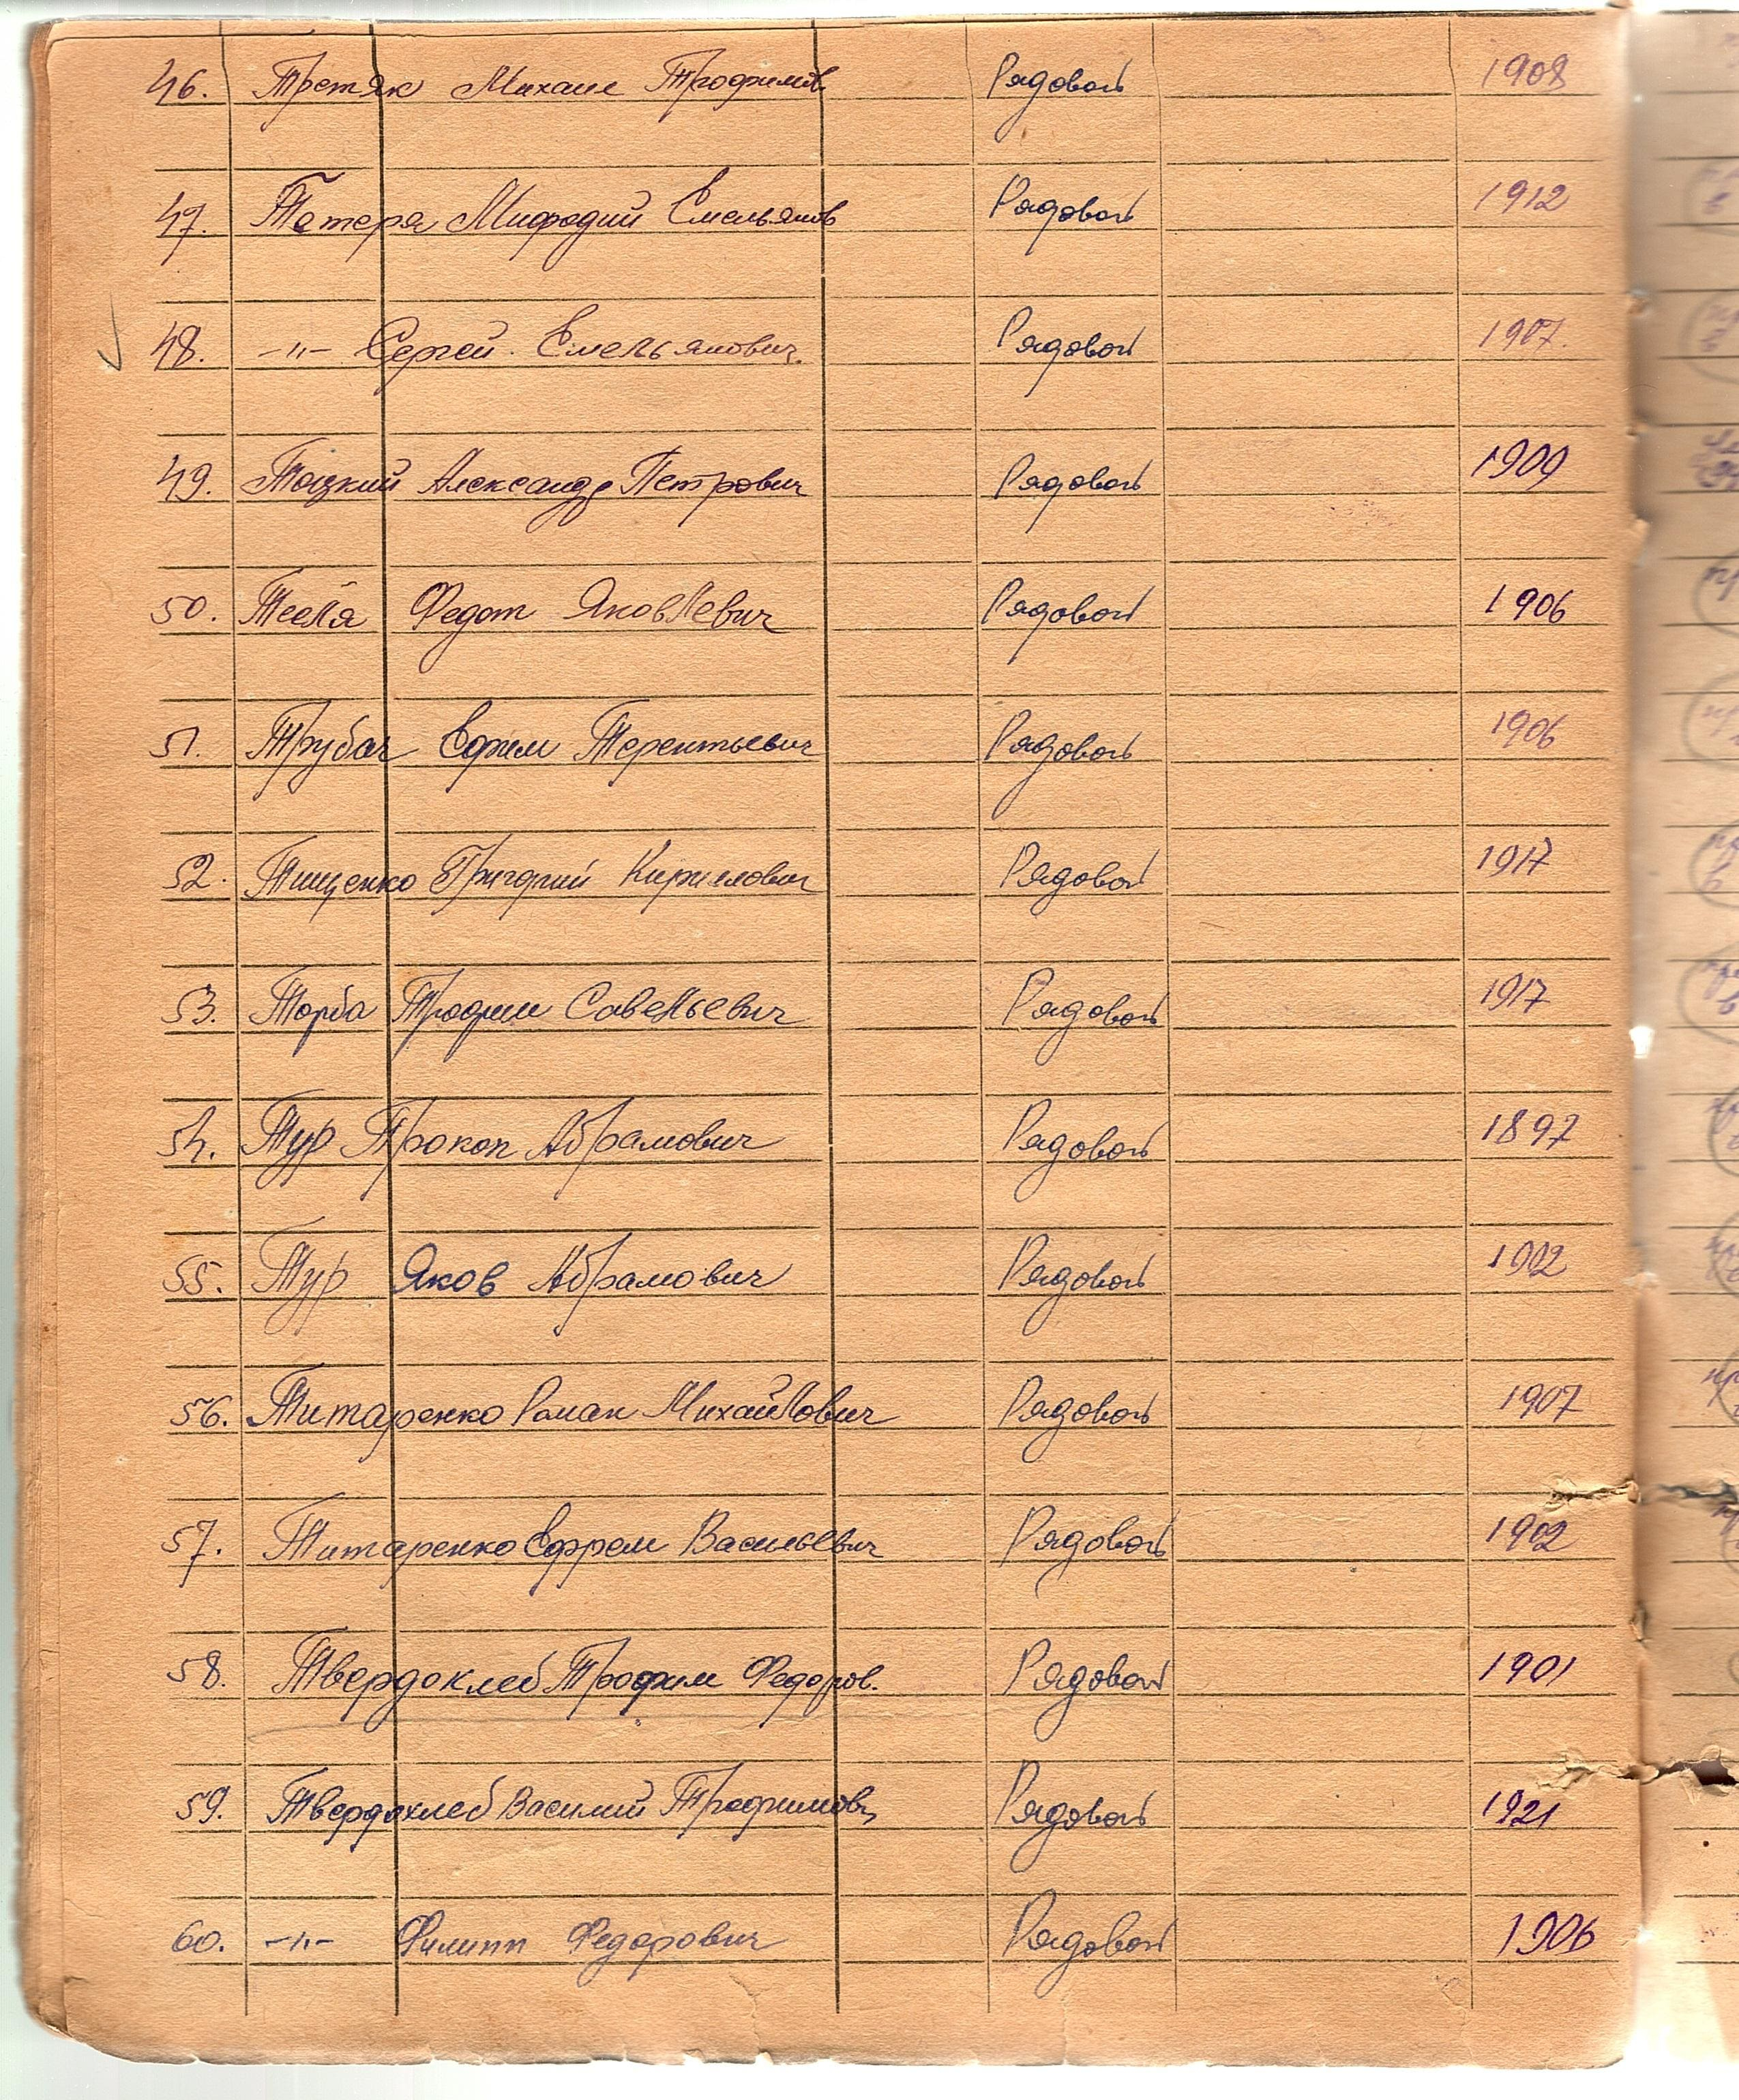 46. Третяк Михаил Трофимов Рядовой 1908
47. Тетеря Мифодий Емельянов Рядовой 1912
48. -"- Сергей Емельянович. Рядовой 1907.
49. Тоцкий Александр Петрович Рядовой 1909
50. Федот Яковлевич Рядовой 1906
51. Трубач Ефим Терентьевич Рядовой 1906
52. Тищенко Григорий Кирилович Рядовой 1917
53. Торба Трофим Савельевич Рядовой 1917
54. Тур Прокоп Абрамович Рядовой 1897
55. Тур Яков Абрамович Рядовой 1902
56. Титаренко Роман Михайлович Рядовой 1907
57. Титаренко Ефрем Васильевич Рядовой 1902
58. Твердохлеб Трофим Федоров. Рядовой 1901
59. Твердохлеб Василий Трофимов Рядовой 1921
60. -"- Филипп Федорович Рядовой 1906